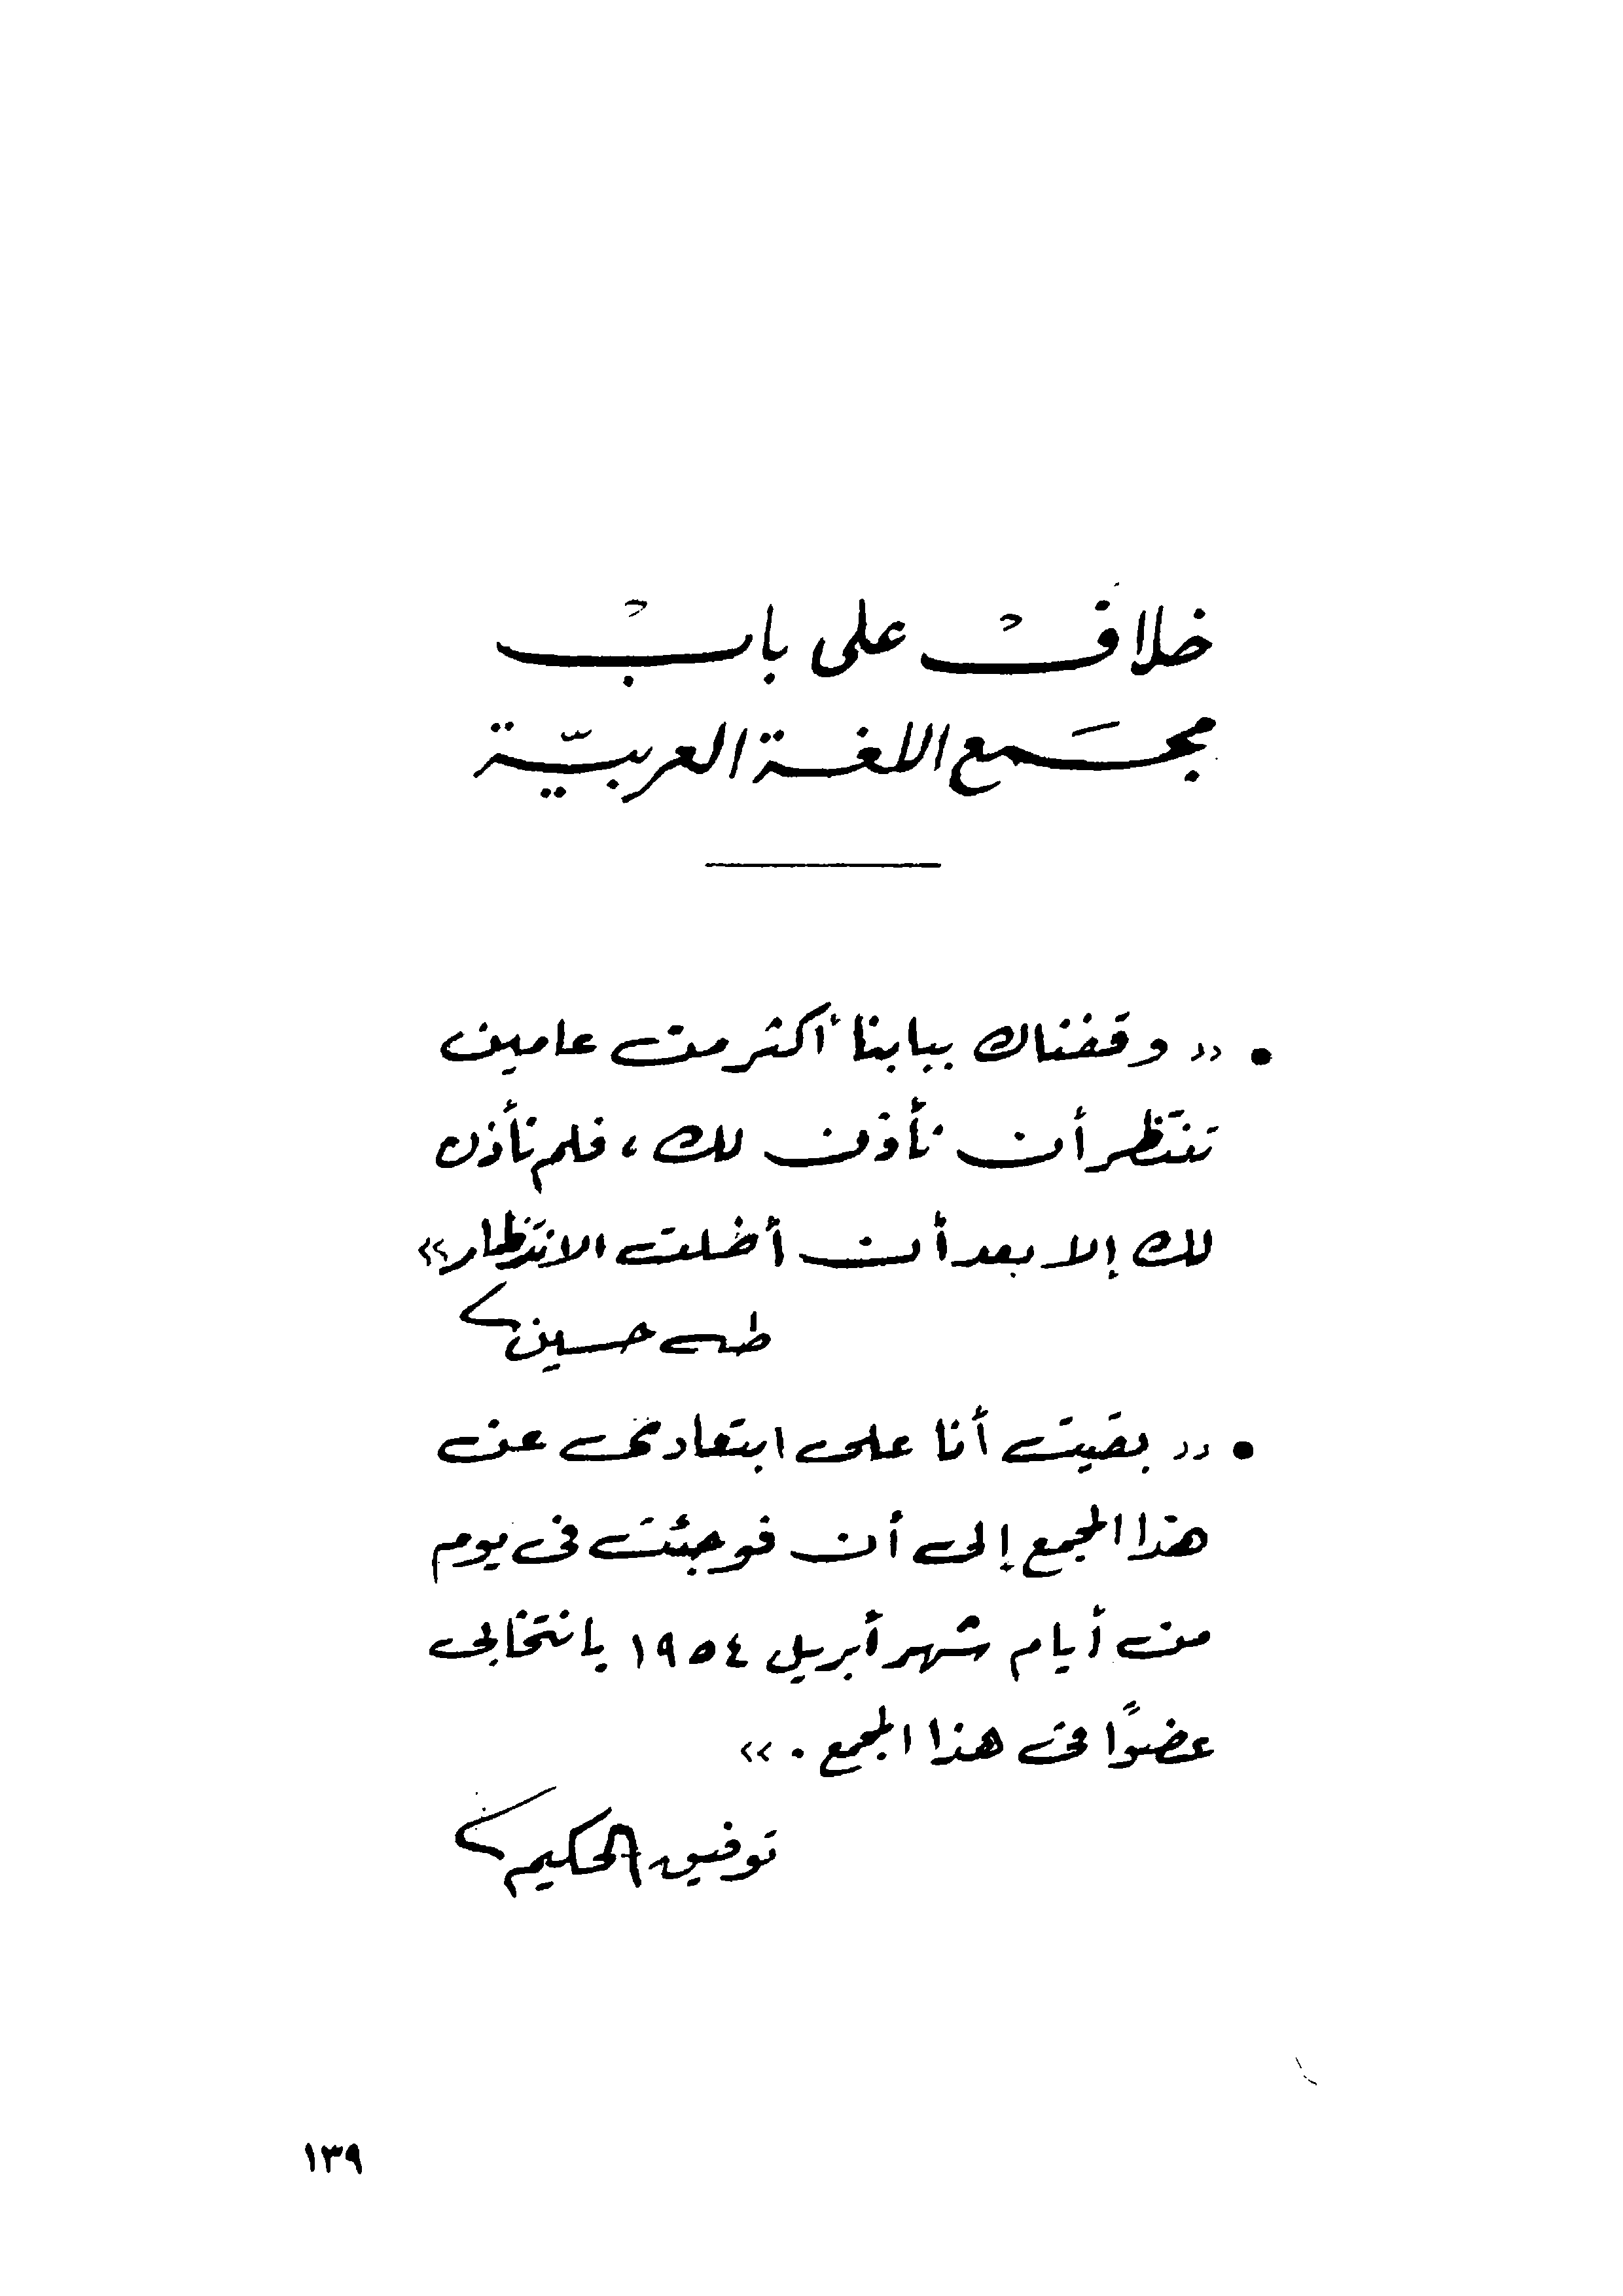 خلاف على باب
مجمَع اللغة العربيّة
• « وقفناك ببابنا أكثر من عامين
تنتظر أن نأذن لك ، فلم نأذن
لك إلا بعد أن أضلت الانتظار »
طه حسين
• « بقيت أنا على ابتعادى عن
هذا المجمع إلى أن فوجئت فى يوم
من أيام شهر أبريل ١٩٥٤ بانتخابى
عضوًا فى هذا المجمع . »
توفيق الحكيم
١٣٩